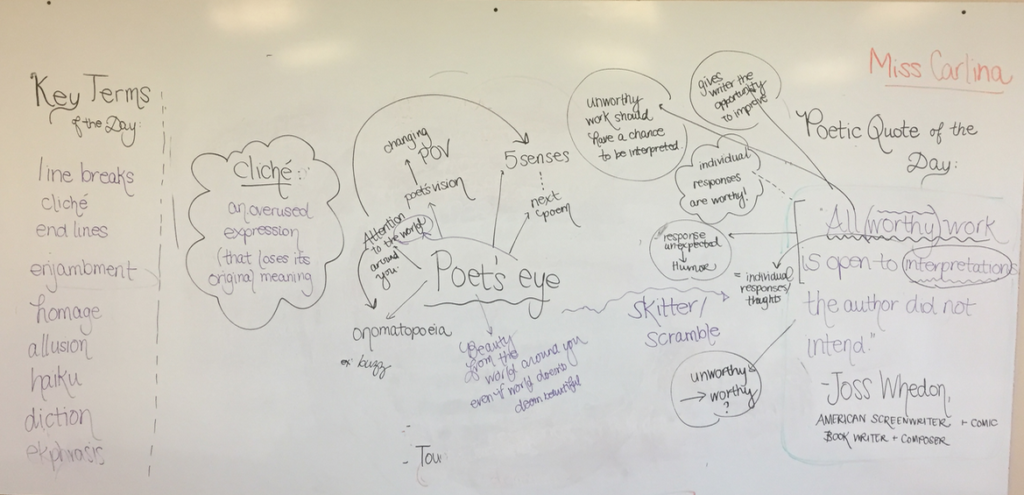 Key Terms
of the Day:
line breaks
cliché
end lines
enjambment
homage
allusion
haiku
diction
ekphrasis
cliché:
an overused
expression
(that loses its
original meaning
changing
POV
poet's vision
Attention
to the world
around
you
5 senses
next
poem
Poet's eye
onomatopoeia
ex: buzz
Beauty
from the
world around you
even if world doesn't
deem beautiful
skitter/
scramble
- Tou
unworthy
work should
have a chance
to be interpreted
gives
writer the
opportunity
to improve
individual
responses
are worthy!
response
unexpected
↓
Humor
= individual
responses/
thoughts
unworthy
→ worthy
?
Miss Carlina
Poetic Quote of the
Day:
"All (worthy) work
is open to interpretations
the author did not
intend."
- Joss Whedon,
AMERICAN SCREENWRITER + COMIC
BOOK WRITER + COMPOSER